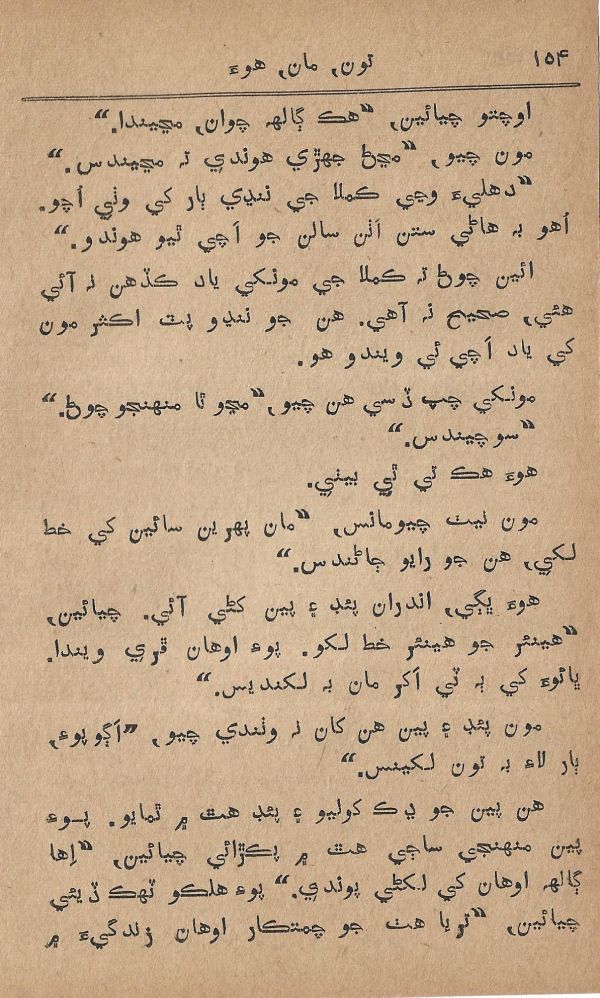 ۱۵۴
تون, مان, هوءَ
اوچتو چيائين, “هڪ ڳالهہ چوان, مڃيندا.”
مون چيو, “مڃڻ جهڙي هوندي تہ مڃيندس.”
“دهليءَ وڃي ڪملا جي ننڍي ٻار کي وٺي اُچو.
اُهو بہ هاڻي ستن اَٺن سالن جو اَچي ٿيو هوندو.”
ائين چوڻ تہ ڪملا جي مونکي ياد ڪڏهن نہ آئي
هئي, صحيح نہ آهي. هن جو ننڍو پٽ اڪثر مون
کي ياد اَچي ئي ويندو هو.
مونکي چپ ڏسي هن چيو, “مڃو ٿا منهنجو چوڻ.”
“سوچيندس.”
هوءَ هڪ ٽي ٿي بيٺي.
مون نيٺ چيومانس, “مان پهرين سائين کي خط
لکي, هن جو رايو ڄاڻندس.”
هوءَ ڀڳي, اندران پئڊ ۽ پين کڻي آئي. چيائين,
“هينئر جو هينئر خط لکو. پوءِ اوهان ڦري ويندا.
ڀائوءَ کي ٻہ ٽي اَکر مان بہ لکنديس.”
مون پئڊ ۽ پين هن کان نہ وٺندي چيو, “اَڳو پوءِ,
ٻار لاءِ بہ تون لکينس.”
هن پين جو ڍڪ کوليو ۽ پئڊ هٿ ۾ ٿمايو. پوءِ
پين منهنجي ساڄي هٿ ۾ پڪڙائي چيائين, “اِها
ڳالهہ اوهان کي لکڻي پوندي.” پوءِ هلڪو ٽهڪ ڏيئي
چيائين, “تريا هٺ جو چمتڪار اوهان زندگيءَ ۾